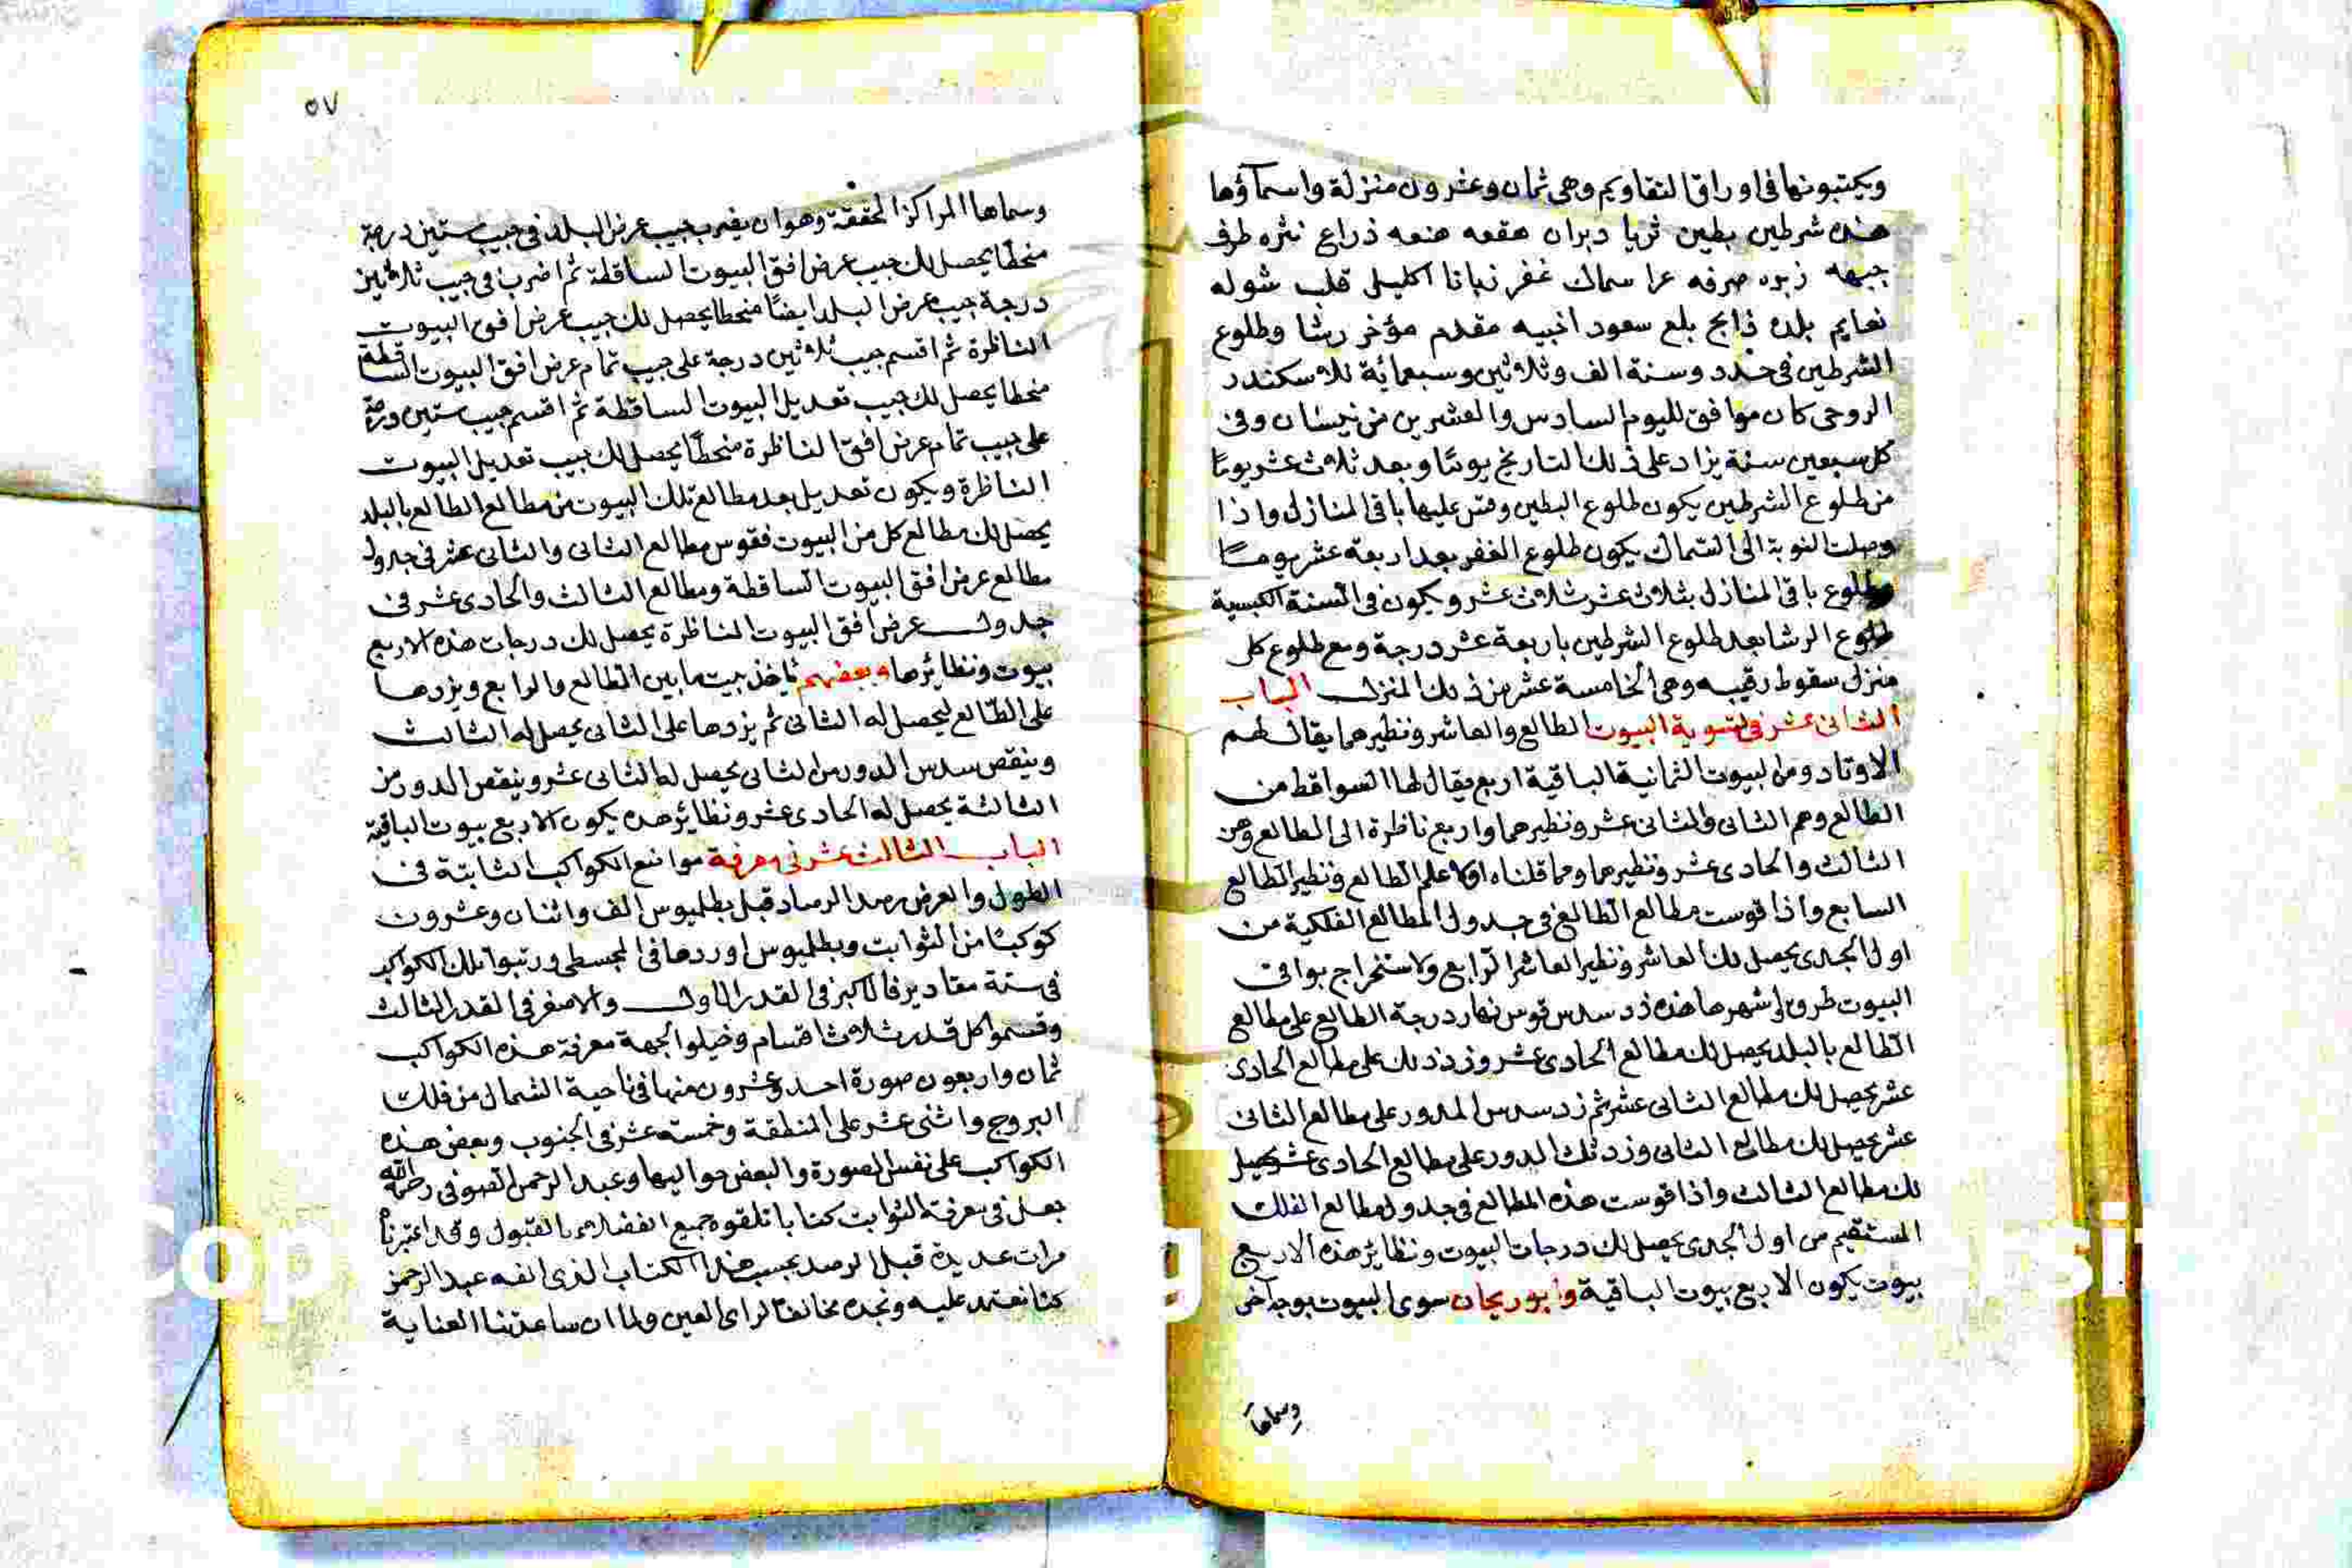 ويكتبونها فى اوراق التقاويم وهى ثمان وعشرون منزلة واسمآؤها
هذه شرطين بطين ثريا دبران هقعه هنعه ذراع نثره طرف
جبهه زبره صرفه عوا سماك غفر زبانا اكليل قلب شوله
نعايم بلده ذابح بلع سعود اخبيه مقدم مؤخر رشا وطلوع
الشرطين فى حدود سنة الف وثلاثين وسبعمائة للاسكندر
الرومى كان موافق لليوم السادس والعشرين من نيسان وفى
كل سبعين سنة يزاد على ذلك التاريخ يومًا وبعد ثلاث عشر يومًا
من طلوع الشرطين يكون طلوع البطين وقس عليها باقى المنازل واذا
وصلت النوبة الى السماك يكون طلوع الغفر بعد اربعة عشر يومًا
وطلوع باقى المنازل بثلاث عشر ثلاث عشر ويكون فى السنة الكبيسية
طلوع الرشا بعد طلوع الشرطين باربعة عشر درجة ومع طلوع كل
منزل سقوط رقيبه وهى الخامسة عشر من ذلك المنزل الباب
الثانى عشر فى تسوية البيوت الطالع والعاشر ونظيرهما يقال لهم
الاوتاد ومن البيوت الثمانية الباقية اربع يقال لها السواقط من
الطالع وهم الثانى والثانى عشر ونظيرهما واربع ناظرة الى الطالع وهن
الثالث والحادى عشر ونظيرهما ومما قلناه اولا علم الطالع ونظير الطالع
السابع واذا قوست مطالع الطالع فى جدول المطالع الفلكية من
اول الجدى يحصل لك العاشر ونظير العاشر الرابع ولاستخراج بواقى
البيوت طرق اشهرها هذه زد سدس قوس نهار درجة الطالع على مطالع
الطالع بالبلد يحصل لك مطالع الحادى عشر وزد ذلك على مطالع الحادى
عشر يحصل لك مطالع الثانى عشر ثم زد سدس الدور على مطالع الثانى
عشر يحصل لك مطالع الثانى وزد ثلث الدور على مطالع الحادى عشر يحصل
لك مطالع الثالث واذا قوست هذه المطالع فى جدول مطالع الفلك
المستقيم من اول الجدى يحصل لك درجات البيوت ونظاير هذه الاربع
بيوت يكون الاربع بيوت الباقية وابو ريحان سوى البيوت بوجه آخر
وسماها
٥٧
وسماها المراكز المحققة وهو ان يضرب جيب عرض البلد فى جيب ستين درجة
منحطًا يحصل لك جيب عرض افق البيوت الساقطة ثم اضرب فى جيب ثلاثين
درجة جيب عرض البلد ايضًا منحطا يحصل لك جيب عرض افق البيوت
الناظرة ثم اقسم جيب ثلاثين درجة على جيب تمام عرض افق البيوت الساقطة
منحطا يحصل لك جيب تعديل البيوت الساقطة ثم اقسم جيب ستين درجة
على جيب تمام عرض افق الناظرة منحطًا يحصل لك جيب تعديل البيوت
الناظرة ويكون تعديل بعد مطالع تلك البيوت من مطالع الطالع بالبلد
يحصل لك مطالع كل من البيوت فقوس مطالع الثانى والثانى عشر فى جدول
مطالع عرض افق البيوت الساقطة ومطالع الثالث والحادى عشر فى
جدول عرض افق البيوت الناظرة يحصل لك درجات هذه الاربع
بيوت ونظائرها وبعضهم ياخذ بيت ما بين الطالع والرابع ويزدها
على الطالع ليحصل له الثانى ثم يزدها على الثانى يحصل له الثالث
وينقص سدس الدور من الثانى يحصل له الثانى عشر وينقص الدور من
الثالثة يحصل له الحادى عشر ونظائر هذه يكون الاربع بيوت الباقية
الباب الثالث عشر فى معرفة مواضع الكواكب الثابتة فى
الطول والعرض رصد الرصاد قبل بطلميوس الف واثنان وعشرون
كوكبًا من الثوابت وبطلميوس اوردها فى المجسطى ورتبوا تلك الكواكب
فى ستة مقادير فالاكبر فى القدر الاول والاصغر فى القدر الثالث
وقسموا كل قدر ثلاث اقسام وخيلوا لجهة معرفة هذه الكواكب
ثمان واربعون صورة احد وعشرون منها فى ناحية الشمال من فلك
البروج واثنى عشر على المنطقة وخمسة عشر فى الجنوب وبعض هذه
الكواكب على نفس الصورة والبعض حواليها وعبد الرحمن الصوفى رحمه الله
جعل فى معرفة الثوابت كتابا تلقوه جميع الفضلاء بالقبول وقد اعتبرناه
مرات عديدة قبل الرصد بحسب هذا الكتاب الذى الفه عبد الرحمن
كنا نعتمد عليه ونجده مخالفا لراى العين ولما ان ساعدتنا العناية